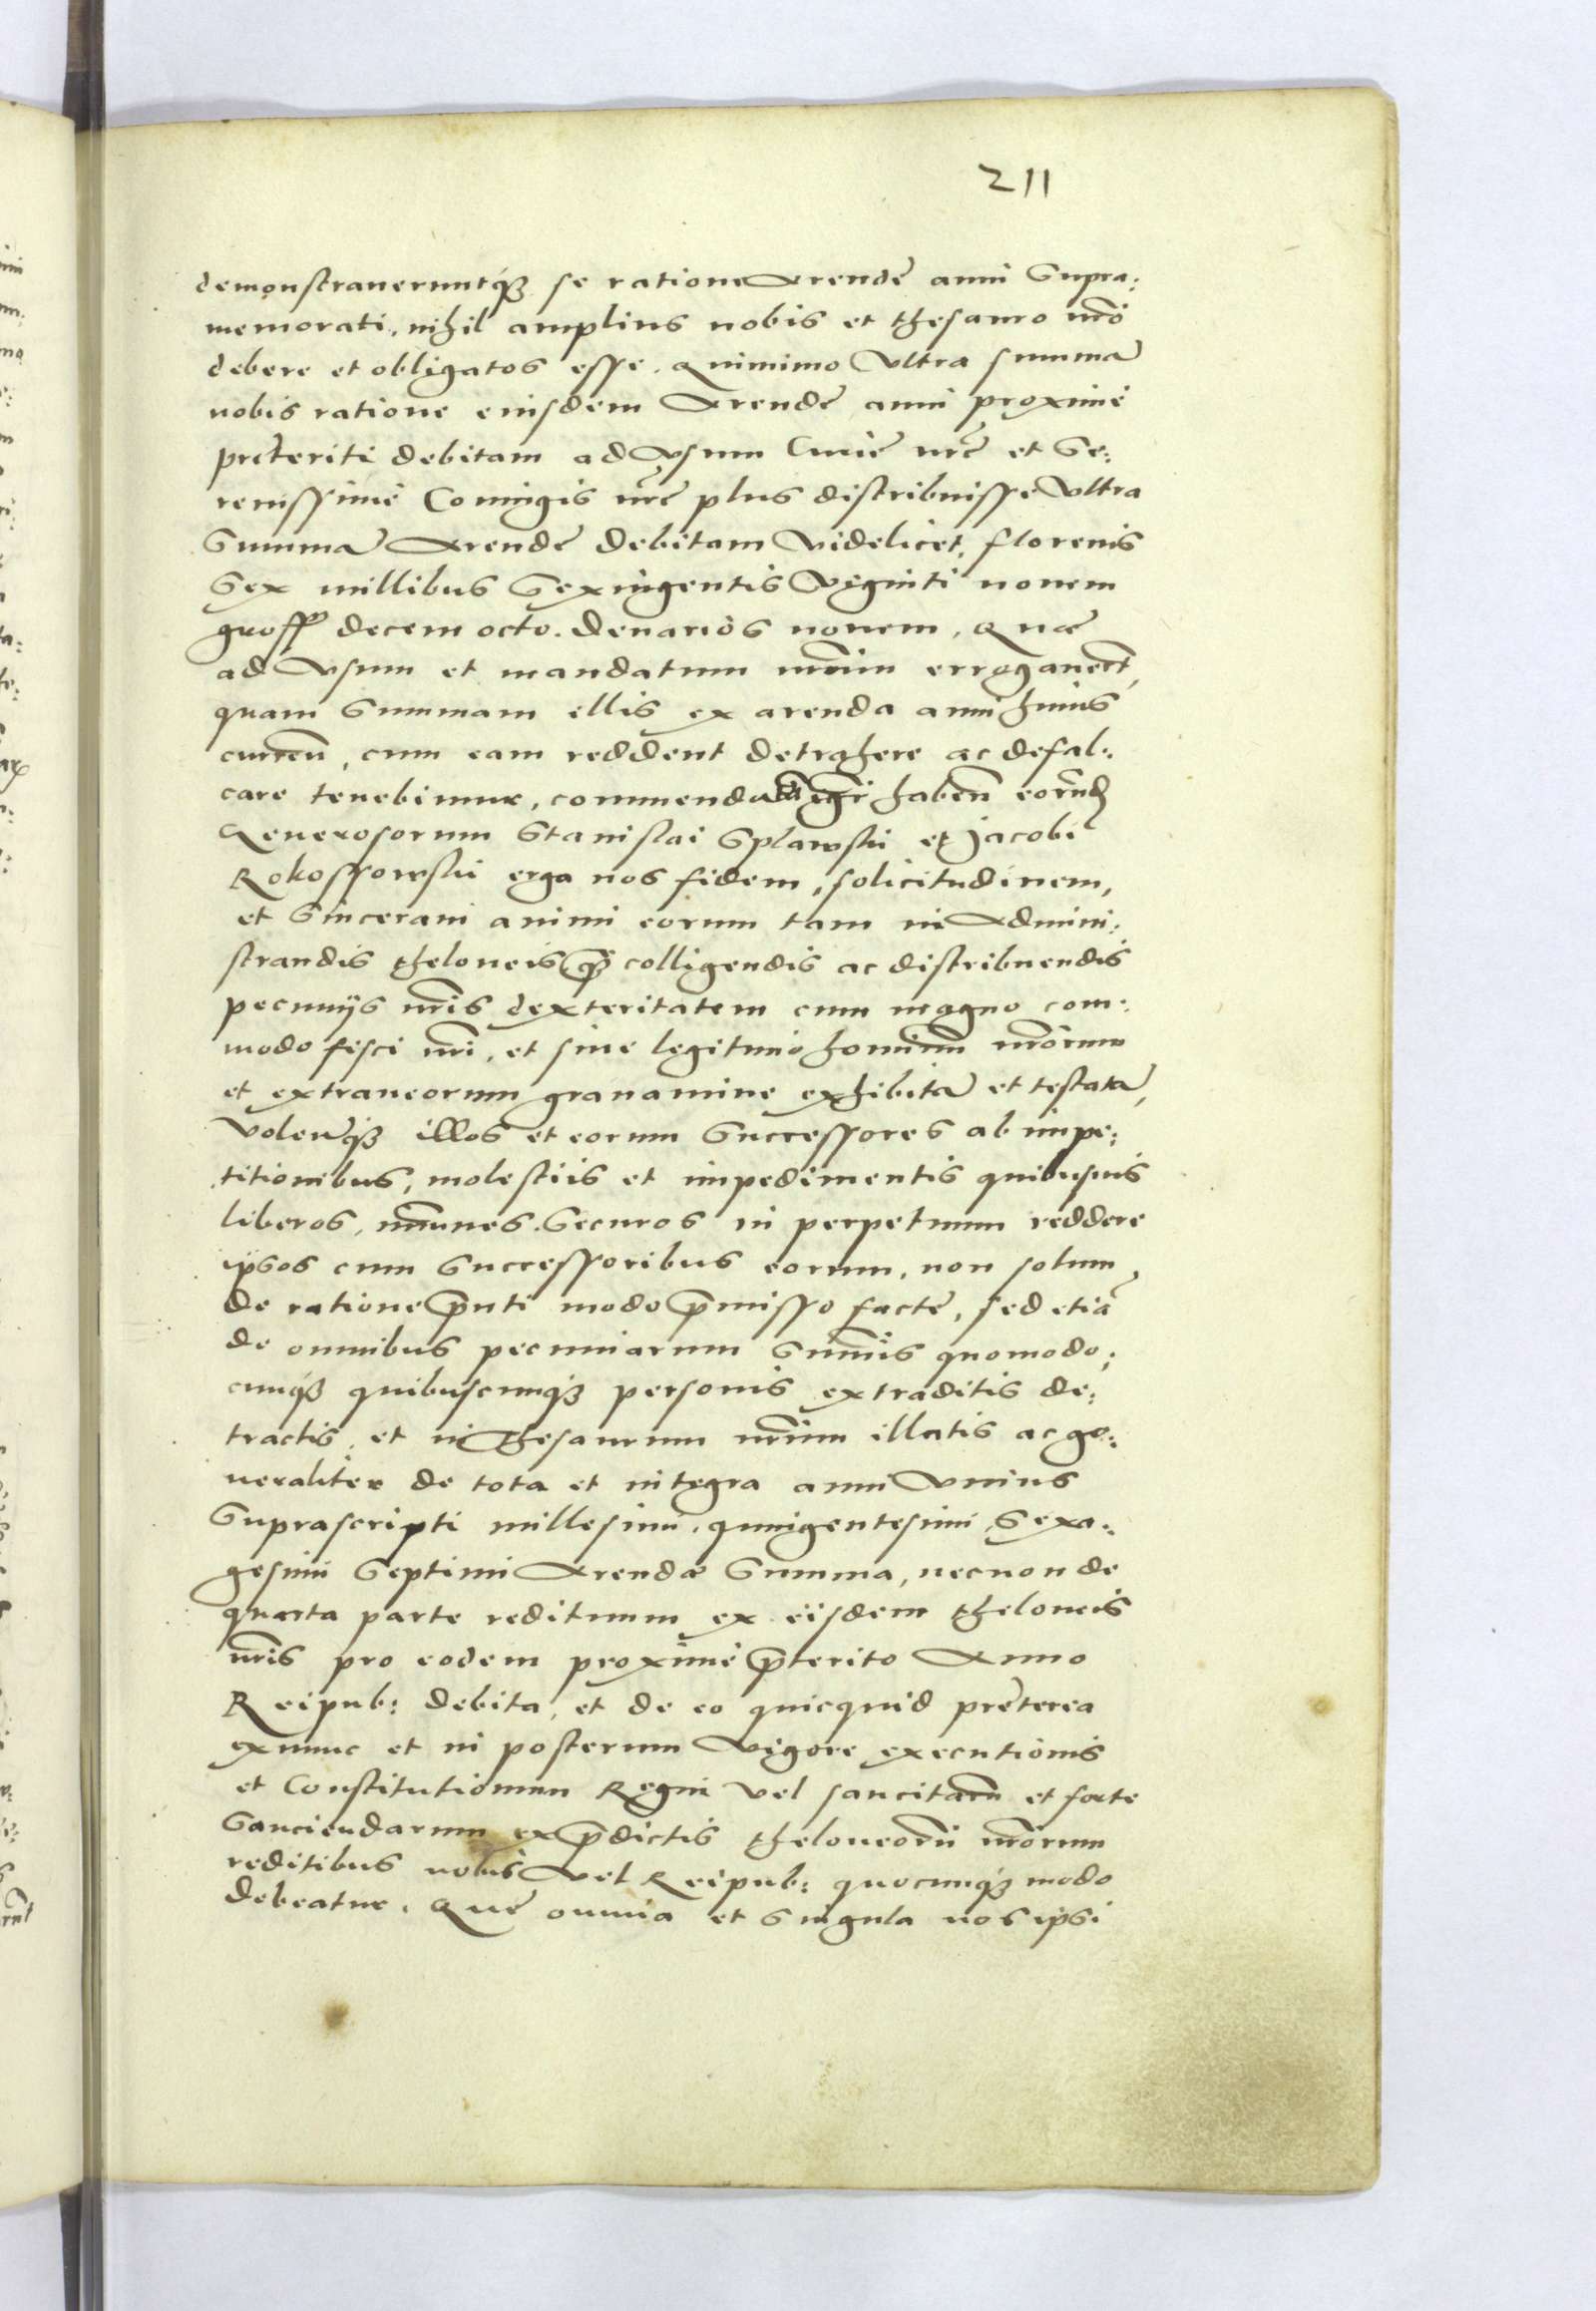 211
demonstraueruntq́ꝫ se ratione Arendę anni Supra:
memorati, nihil amplius nobis et thesauro nr̃o
debere et obligatos esse. Quinimo Vltra summã
nobis ratione eiusdem Arendę anni proxime
pręteriti debitam ad Vsum Curię nr̃ę et Se:
renissimę Coniugis nr̃ę plus distribuisse Vltra
Summã Arendę debitam Videlicet, florenis
Sex millibus Sexingentis Viginti nouem
gross decem octo. Denarios nouem, Quæ
ad Vsum et mandatum nr̃um erroganer̃t,
quam Summam illis ex arenda anni huius
curreñ, cum eam reddent detrahere ac defal:
care tenebimur, haбeñ eorund
Generosorum Stanislai Splawskii et Jacobi
Rokossowskii erga nos fidem, solicitudinem,
et Sinceram animi eorum tam in Admini:
strandis theloneis, q̃ꝫ colligendis ac distribuendis
pecunijs nr̃is dexteritatem cum magno com:
modo fisci nr̃i, et sine legitimo hominũm nr̃orum
et extraneorum grauamine exhibitã et testatã,
Volenq́ꝫ illos et eorum Successores ab impe:
titionibus, molestiis et impedimentis quibusuis
liberos, im̃unes. Securos in perpetuum reddere
ipsos cum Successoribus eorum, non solum
de ratione p̃nti modo p̃misso factę, sed etiã
de omnibus pecuniarum Sum̃is quomodo:
cunq́ꝫ quibuscunq́ꝫ personis extraditis de:
tractis, et in Thesaurum nr̃um illatis ac ge:
neraliter de tota et integra anni Vnius
Suprascripti millesimi. quingentesimi Sexa:
gesimi Septimi Arendæ Summa, necnon de
quarta parte redituum ex eisdem theloneis
nr̃is pro eodem proxime p̃terito Anno
Reipub: debita, et de eo quicquid pręterea
exnunc et in posterum Vigore executionis
et Constitutionum Regni Vel sancitarũ et forte
Sanciendarum ex p̃dictis theloneorũ nr̃orum
reditibus nobis Vel Reipub: quocunq́ꝫ modo
debeatur. Quę omnia et Singula nos ipsi